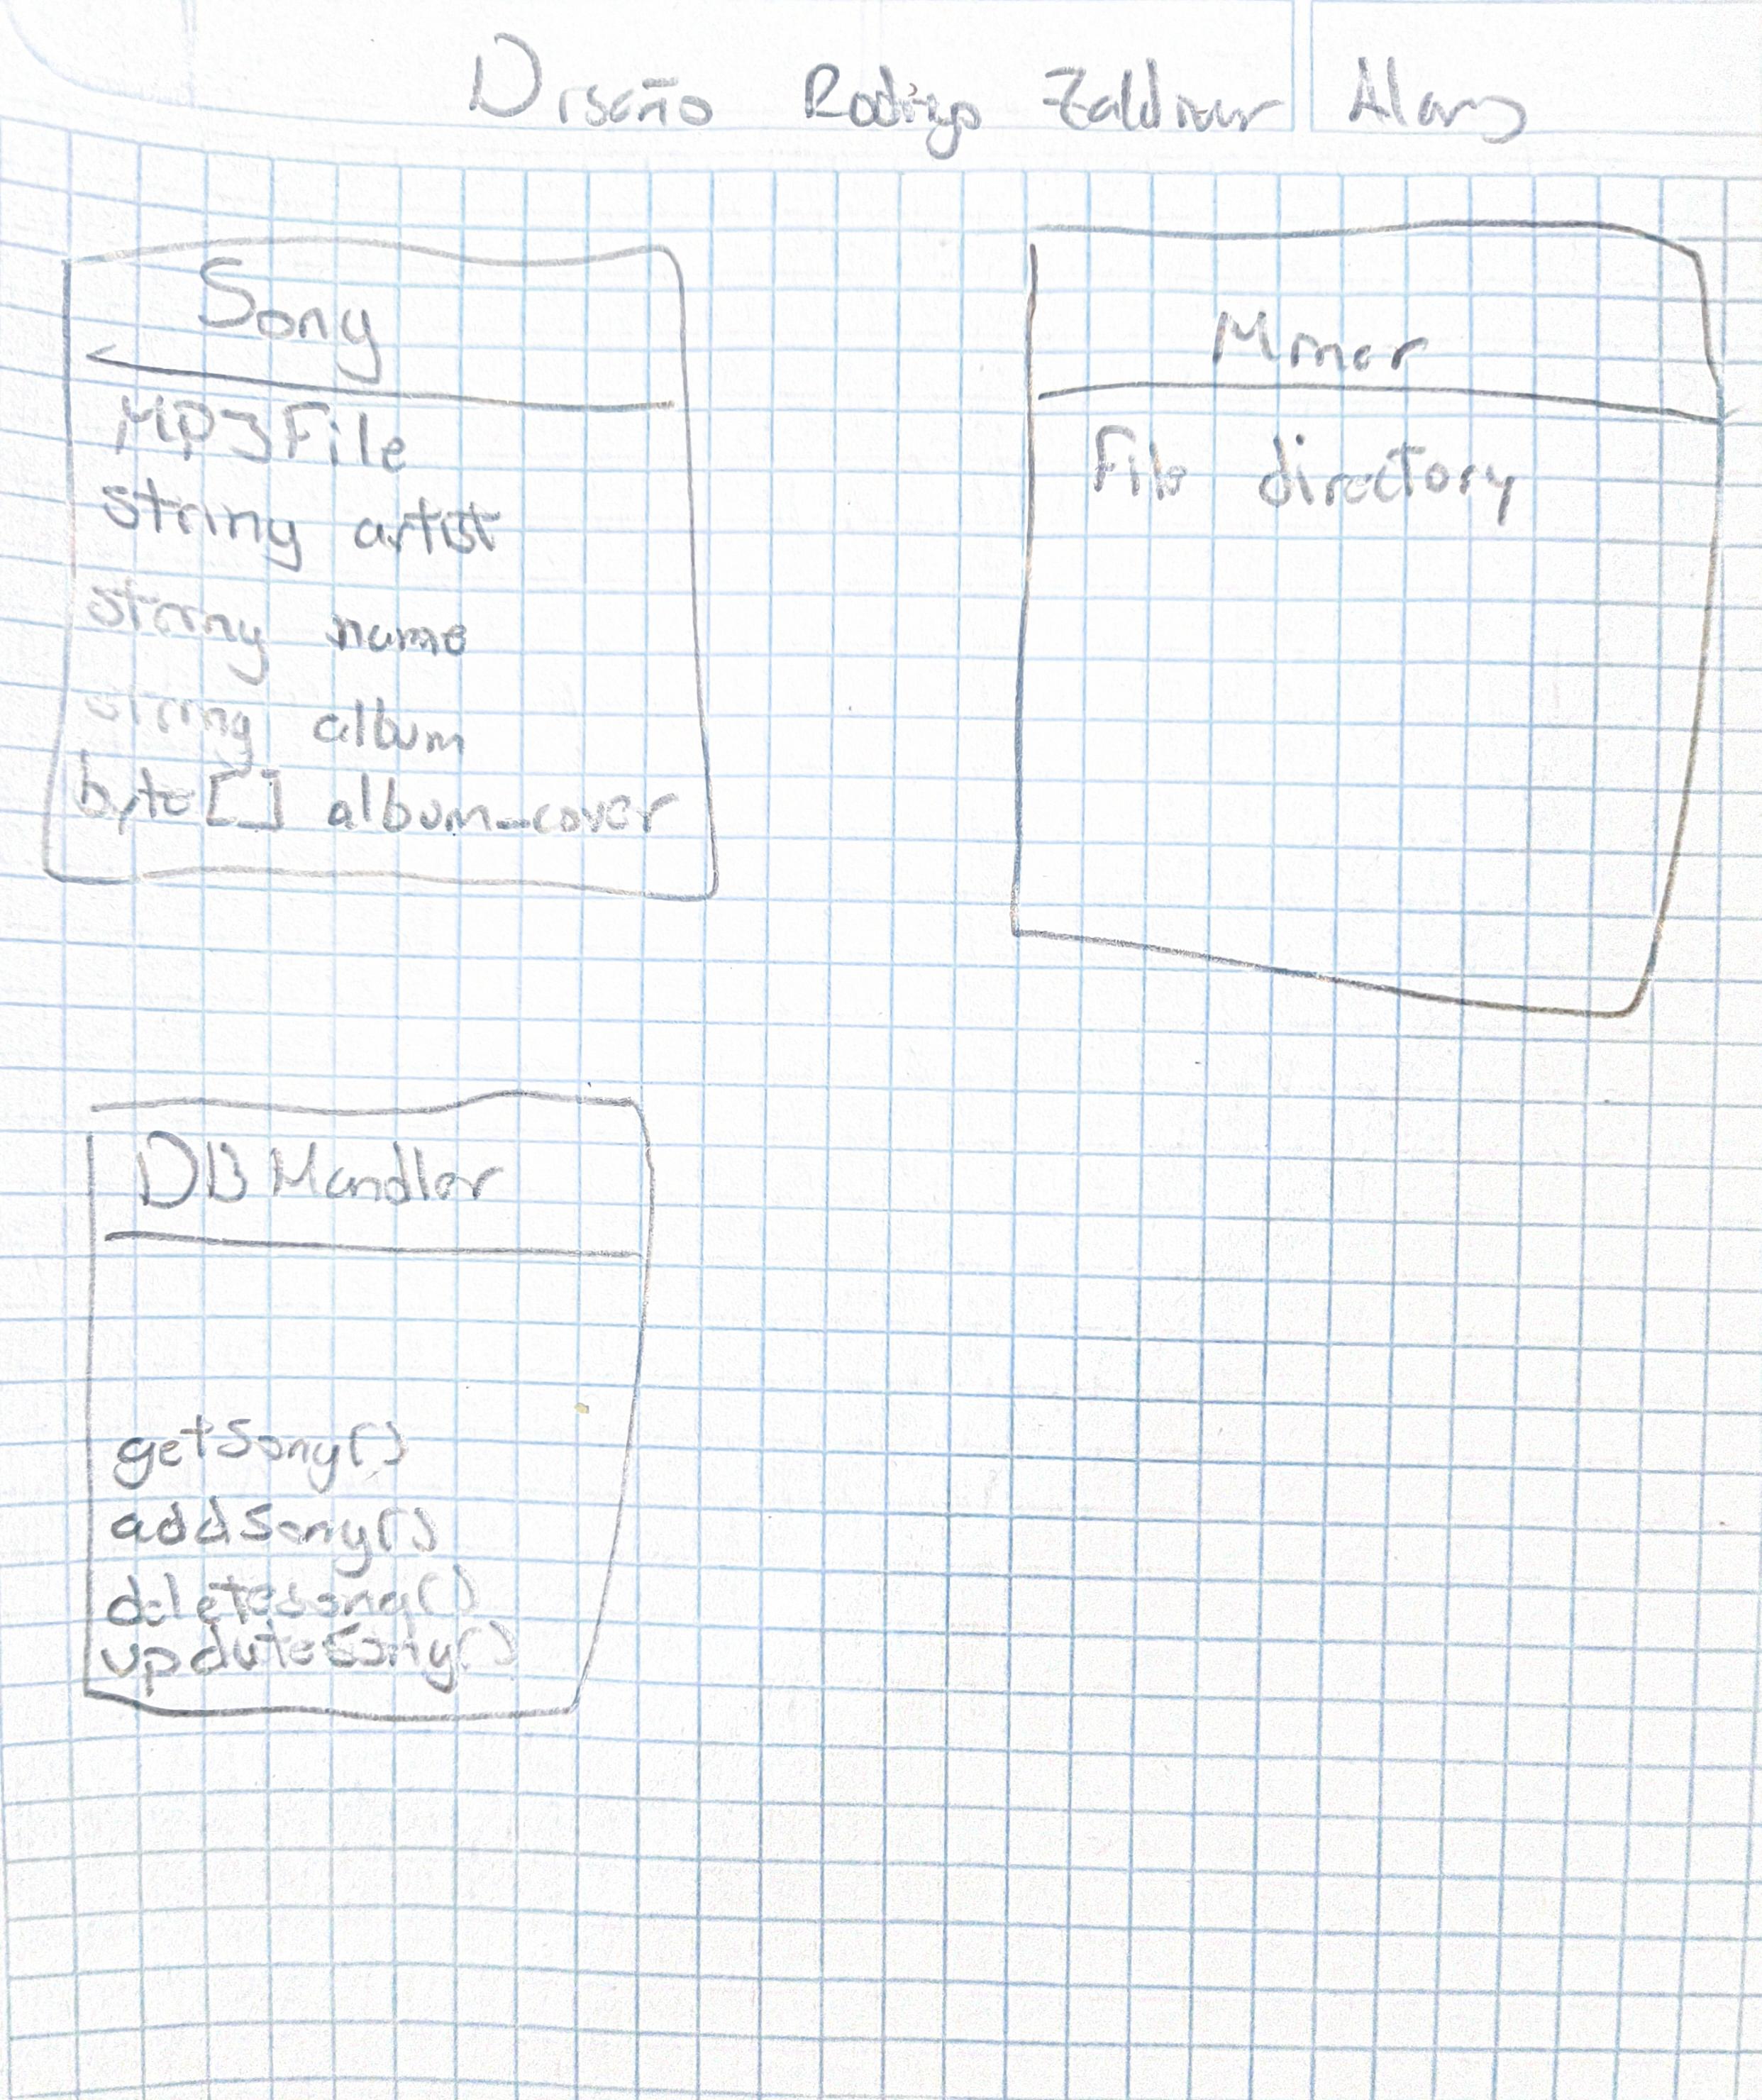 Diseño Rodrigo Zaldivar
Song
MP3File
string artist
string name
string album
byte[] album_cover
Miner
File directory
DB Handler
getSong()
addSong()
deleteSong()
updateSong()